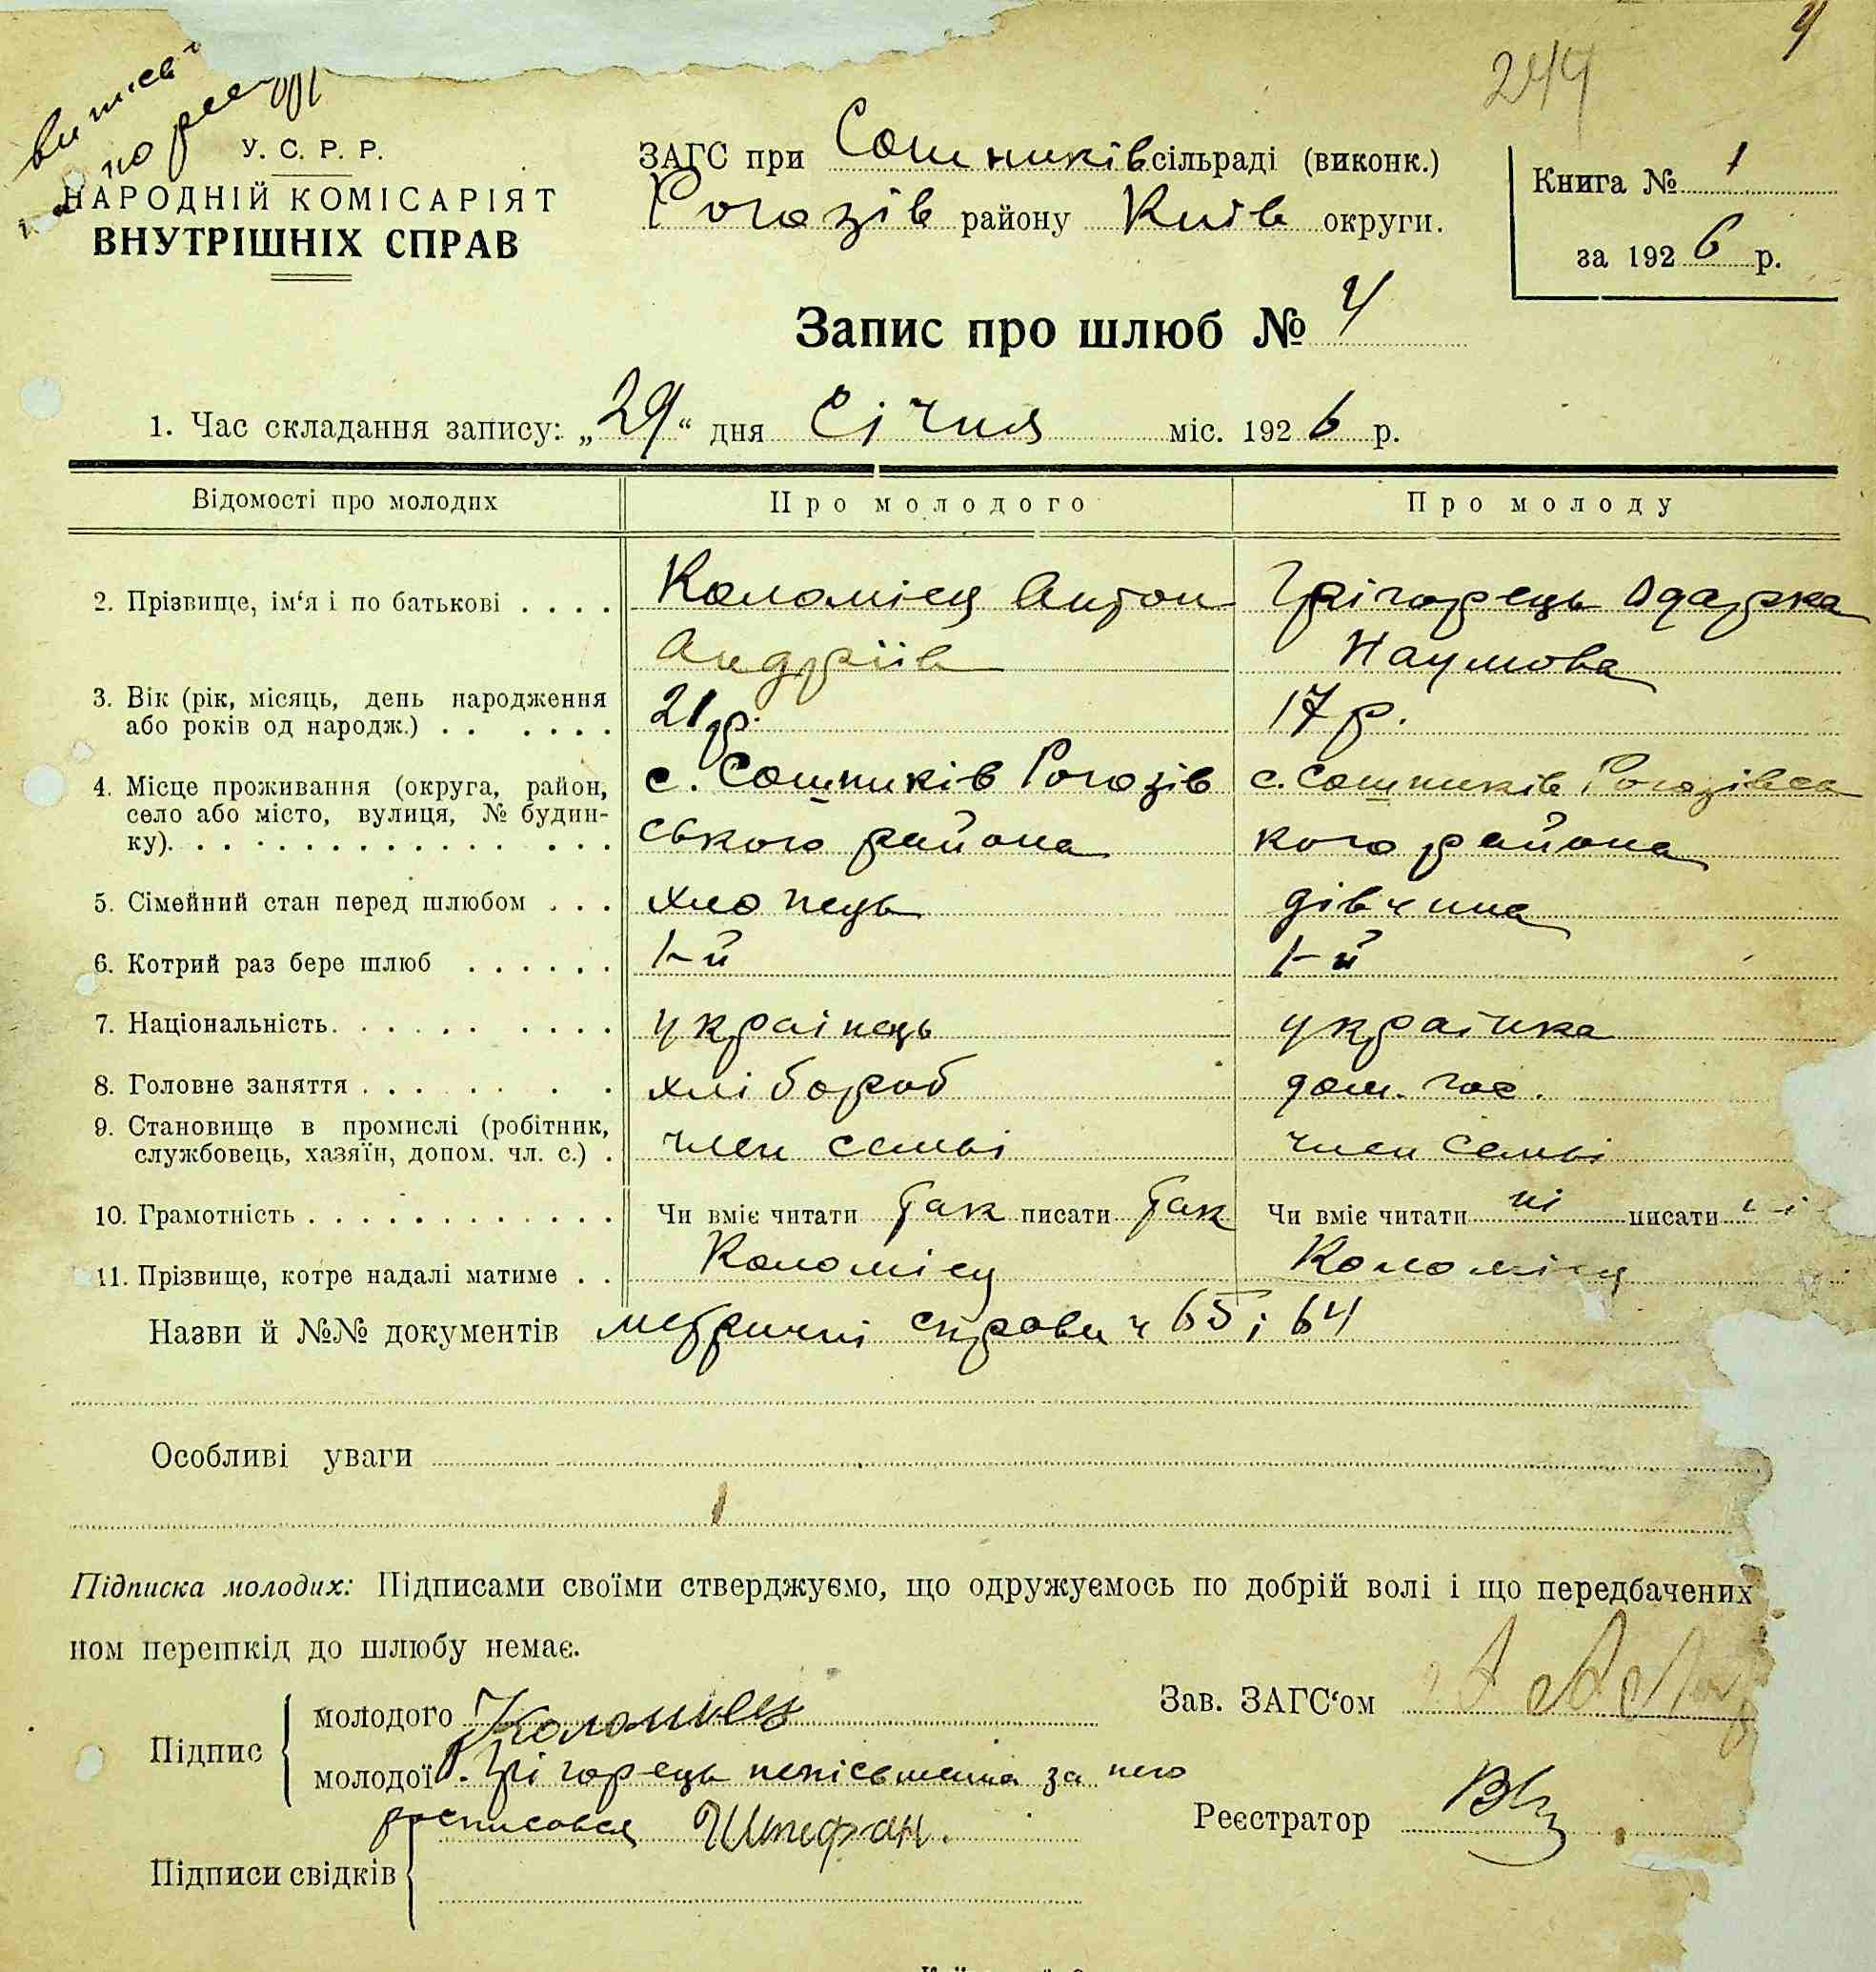 4
244
випись
по реєстр
У. С. Р. Р.
НАРОДНІЙ КОМІСАРІЯТ
ВНУТРІШНІХ СПРАВ
ЗАГС при Сошників сільраді (виконк.)
Рогозів району Київ округи.
Книга № 1
за 1926 р.
Запис про шлюб № 4
1. Час складання запису: „29“ дня Січня міс. 1926 р.
Відомості про молодих Про молодого Про молоду
2. Прізвище, ім‘я і по батькові . . . . Коломієц Антон Грігорець Одарка
Андріїв Наумова
3. Вік (рік, місяць, день народження
або років од народж.) . . . . . . 21 р. 17 р.
4. Місце проживання (округа, район, с. Сошників Рогозів с. Сошників Рогозівсь
село або місто, вулиця, № будин-
ку). . . . . . . . . . . . . . . . ського района кого района
5. Сімейний стан перед шлюбом . . . хлопець дівчина
6. Котрий раз бере шлюб . . . . . . 1-й 1-й
7. Національність. . . . . . . . . . українець українка
8. Головне заняття . . . . . . . . хлібороб дом. гос.
9. Становище в промислі (робітник,
службовець, хазяїн, допом. чл. с.) . член семьі член семьі
10. Грамотність . . . . . . . . . . . . . Чи вміє читати так писати так Чи вміє читати ні писати ні
11. Прізвище, котре надалі матиме . . Коломієц Коломієц
Назви й №№ документів метричні справи ч 65 і 64
Особливі уваги
Підписка молодих: Підписами своїми стверджуємо, що одружуємось по добрій волі і що передбачених
ном перешкід до шлюбу немає.
Підпис
молодого Коломиец
Зав. ЗАГС‘ом
молодої Грігорець непісьменна за него
росписовся Штефан.
Реєстратор
Підписи свідків